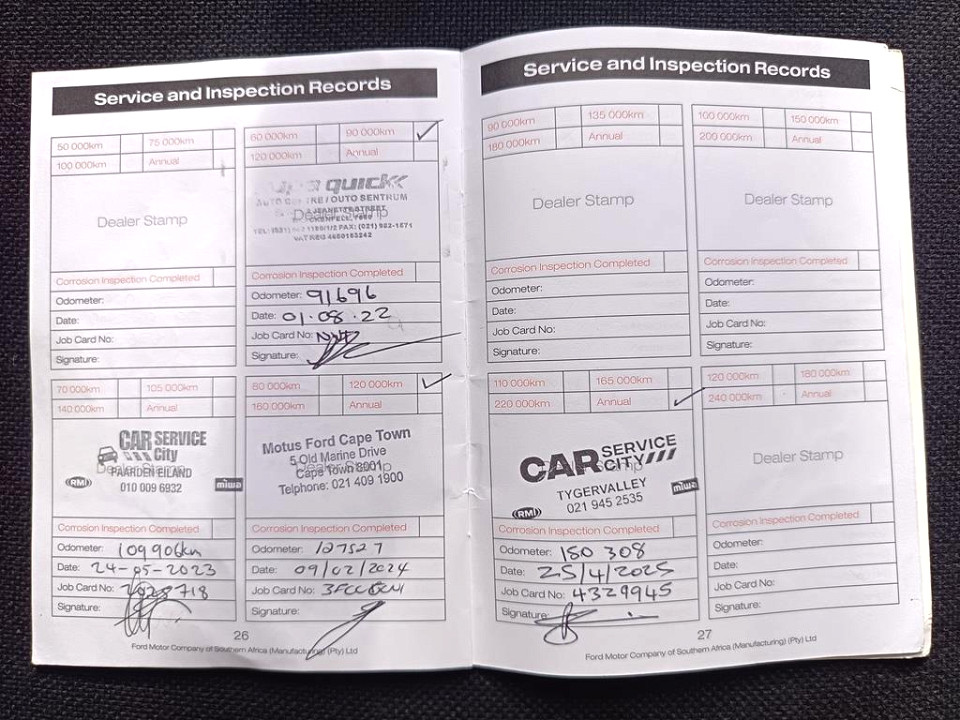 Service and Inspection Records
50 000km 75 000km
100 000km Annual
Dealer Stamp
Corrosion Inspection Completed
Odometer:
Date:
Job Card No:
Signature:
60 000km 90 000km ✓
120 000km Annual
QUICK
AUTO SENTRUM
Dealer Stamp
FAX: (021)
Corrosion Inspection Completed
Odometer: 91696
Date: 01.08.22
Job Card No:
Signature:
70 000km 105 000km
140 000km Annual
CAR SERVICE
City
Dealer Stamp
PAARDEN EILAND
RMI
010 009 6932
miwa
Corrosion Inspection Completed
Odometer: 109906km
Date: 24-05-2023
Job Card No:
Signature:
80 000km 120 000km ✓
160 000km Annual
Motus Ford Cape Town
5 Old Marine Drive
Dealer Stamp
Cape Town 8001
Telphone: 021 409 1900
Corrosion Inspection Completed
Odometer: 127527
Date: 09/02/2024
Job Card No:
Signature:
26
Ford Motor Company of Southern Africa (Manufacturing) (Pty) Ltd
Service and Inspection Records
90 000km 135 000km
180 000km Annual
Dealer Stamp
Corrosion Inspection Completed
Odometer:
Date:
Job Card No:
Signature:
100 000km 150 000km
200 000km Annual
Dealer Stamp
Corrosion Inspection Completed
Odometer:
Date:
Job Card No:
Signature:
110 000km 165 000km
220 000km Annual ✓
CAR SERVICE
CITY
TYGERVALLEY
021 945 2535
RMI
miwa
Corrosion Inspection Completed
Odometer: 150 308
Date: 25/4/2025
Job Card No: 4329945
Signature:
120 000km 180 000km
240 000km Annual
Dealer Stamp
Corrosion Inspection Completed
Odometer:
Date:
Job Card No:
Signature:
27
Ford Motor Company of Southern Africa (Manufacturing) (Pty) Ltd